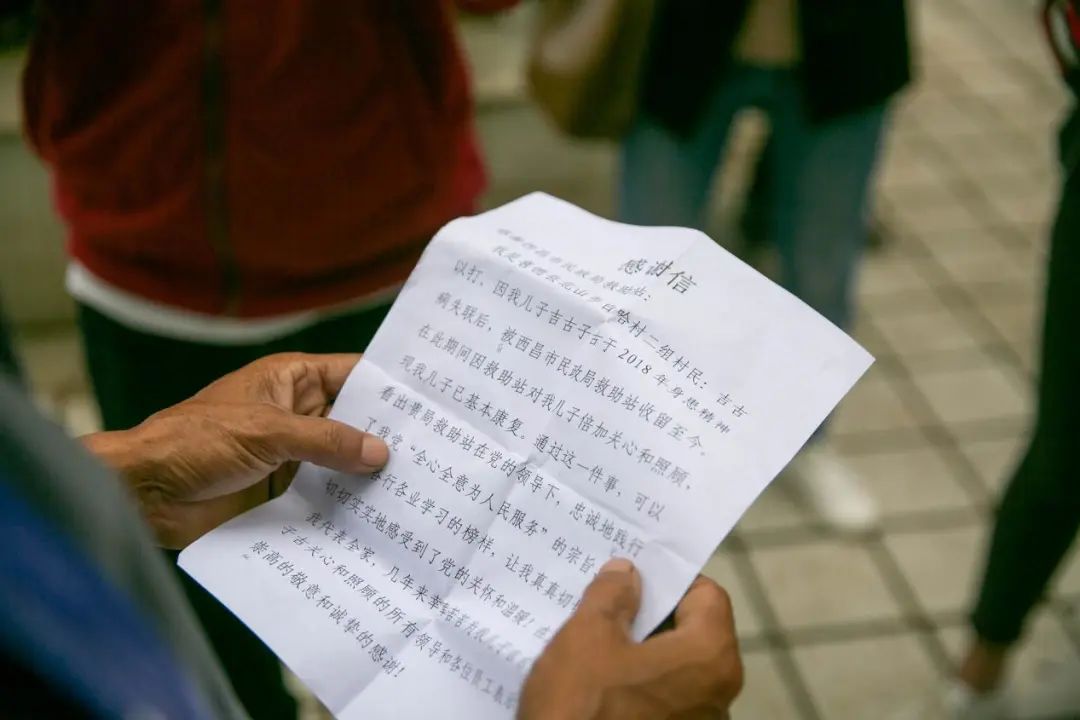 感谢信
西昌市民政局救助站:
我是 北山乡日哈村二组村民:吉古
以打、因我儿子吉古子古于2018年身患精神
病失联后,被西昌市民政局救助站收留至今。
在此期间因救助站对我儿子倍加关心和照顾,
现我儿子已基本康复。通过这一件事,可以
看出贵局救助站在党的领导下,忠诚地践行
了我党“全心全意为人民服务”的宗旨
各行各业学习的榜样,让我真真切
切切实实地感受到了党的关怀和温暖!在
我代表全家,几年来 我儿子吉
子古关心和照顾的所有领导和各位职工表示
崇高的敬意和诚挚的感谢!